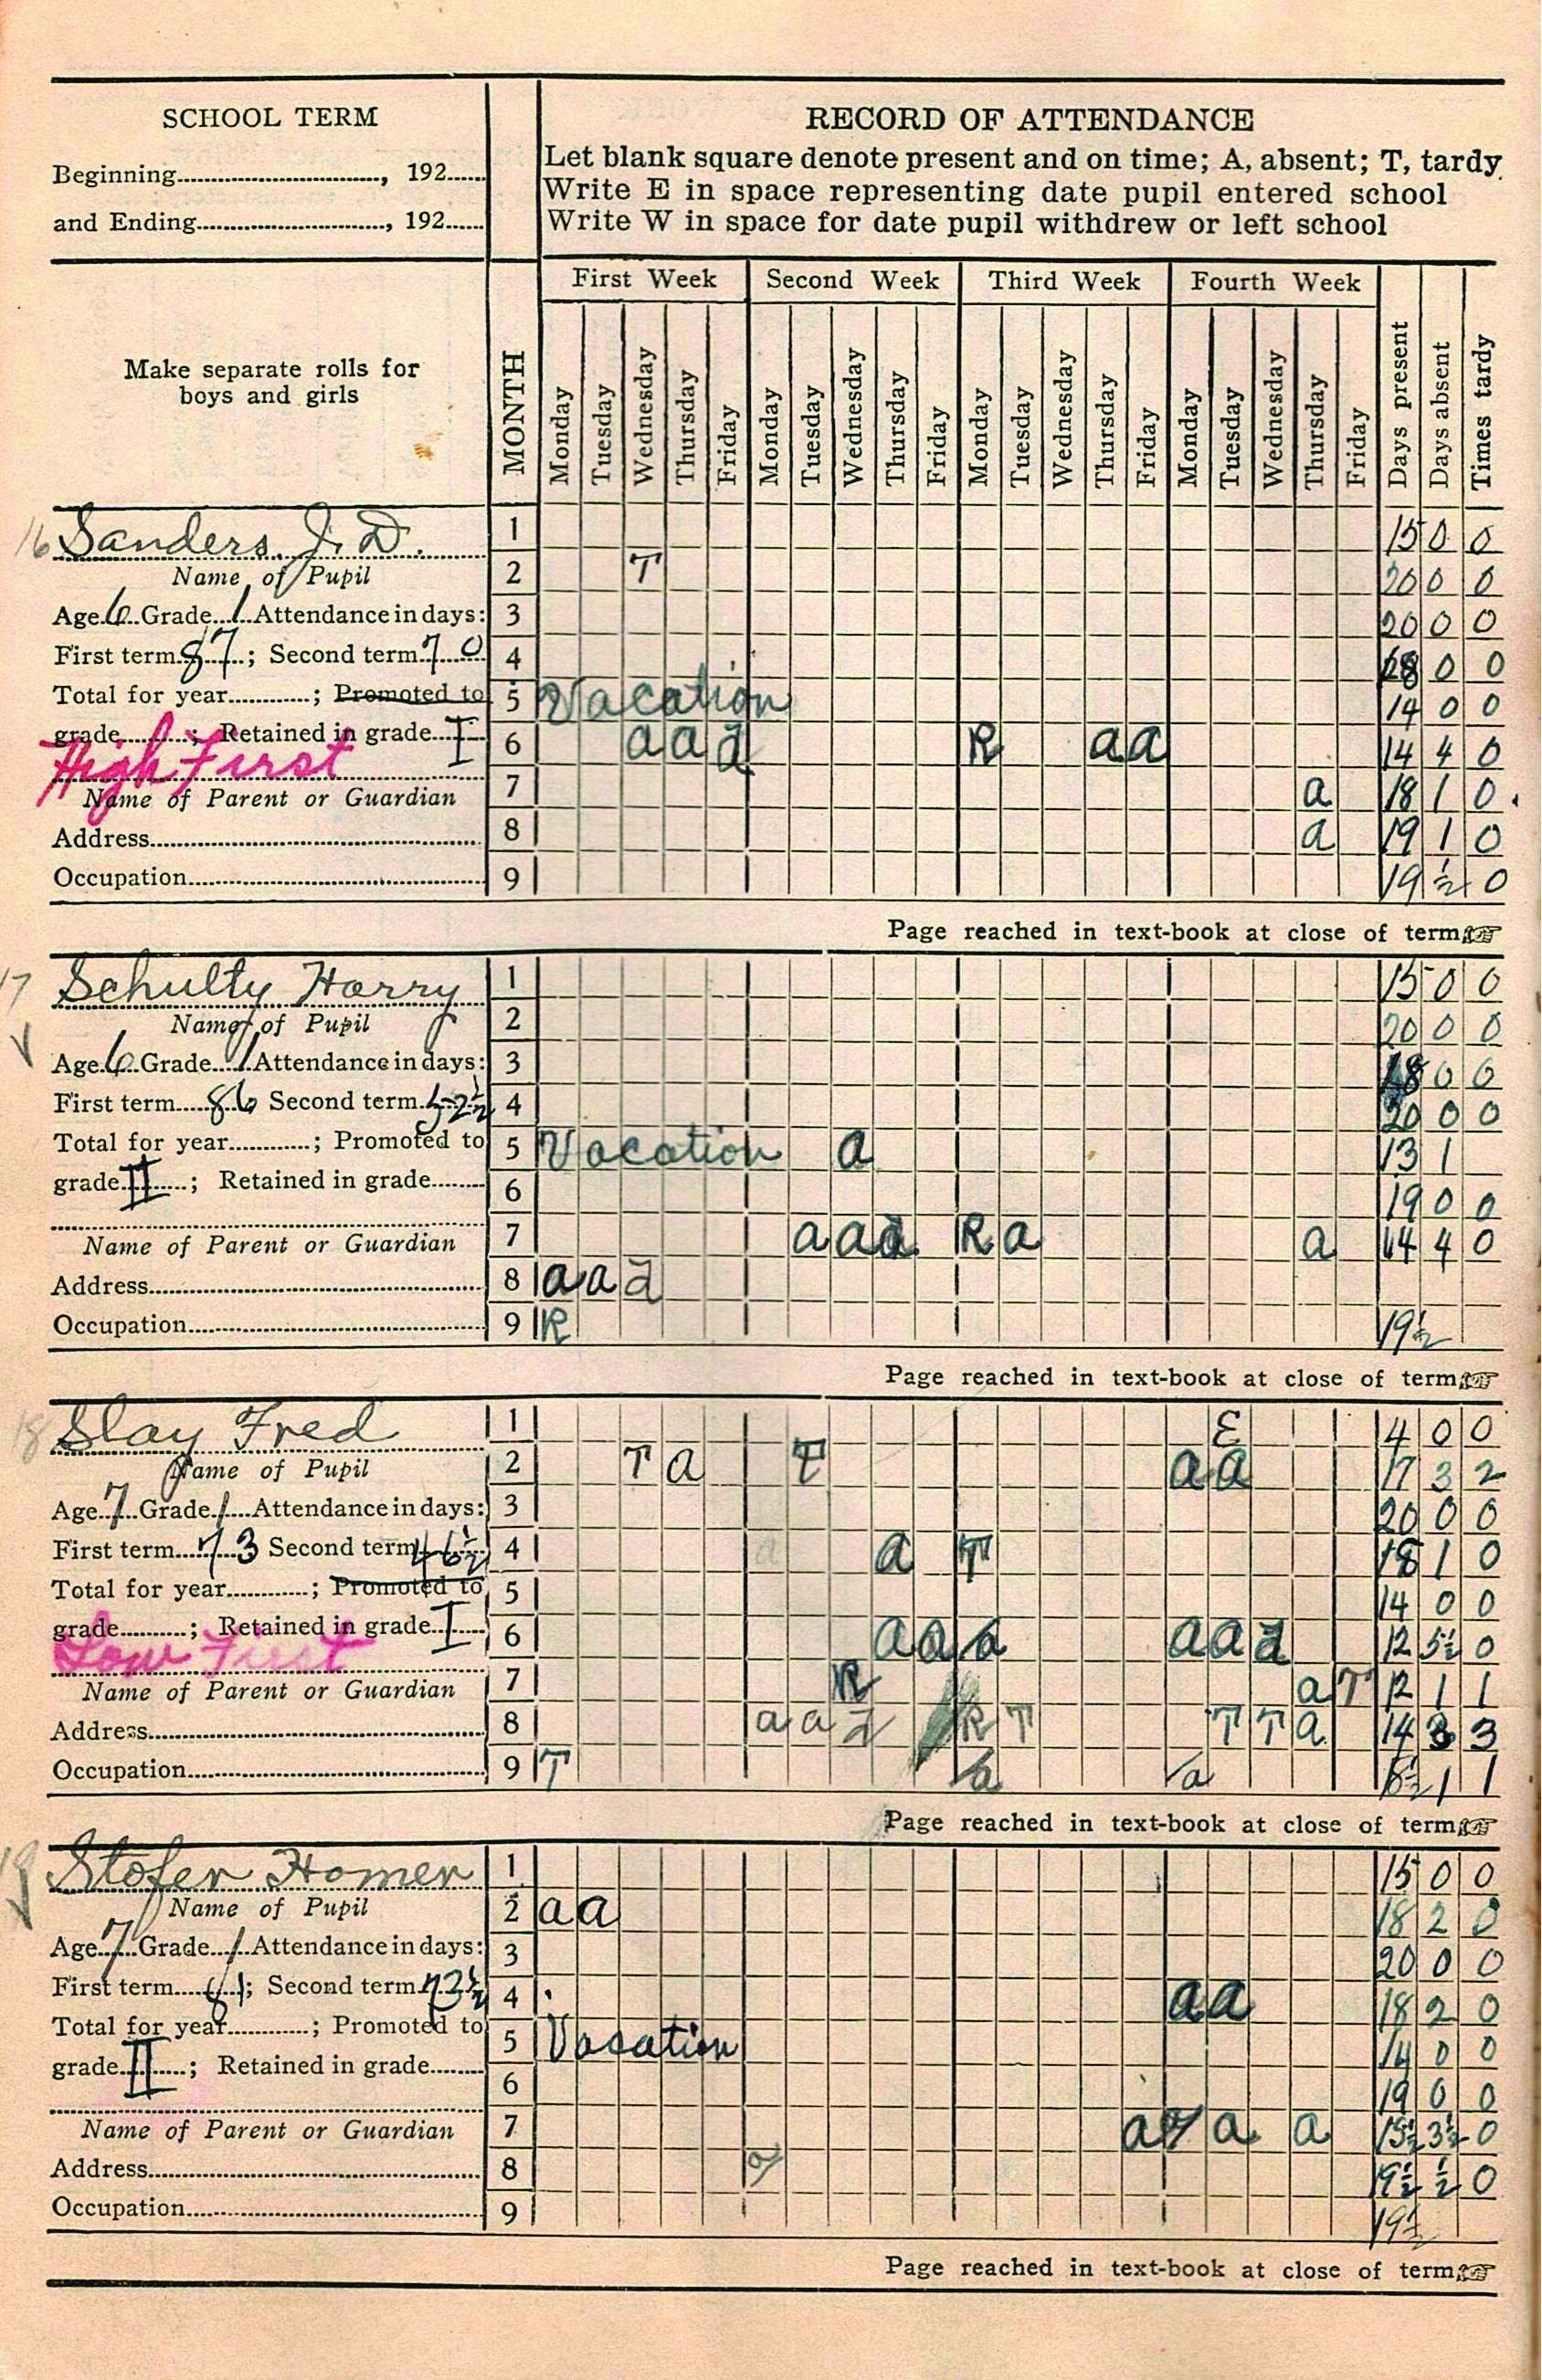 SCHOOL TERM
Beginning, 192
and Ending, 192
RECORD OF ATTENDANCE
Let blank square denote present and on time; A, absent; T, tardy.
Write E in space representing date pupil entered school
Write W in space for date pupil withdrew or left school
Make separate rolls for
boys and girls
MONTH
First Week Second Week Third Week Fourth Week
Monday Tuesday Wednesday Thursday Friday Monday Tuesday Wednesday Thursday Friday Monday Tuesday Wednesday Thursday Friday Monday Tuesday Wednesday Thursday Friday Days present Days absent Times tardy
16 Sanders, J. D.
Name of Pupil
Age 6 Grade 1 Attendance in days:
First term 87; Second term 70
Total for year; Promoted to
grade; Retained in grade I
High First
Name of Parent or Guardian
Address
Occupation
1 15 0 0
2 T 20 0 0
3 20 0 0
4 0 0
5 Vacation 14 0 0
6 a a a R a a 14 4 0
7 a 18 1 0
8 a 19 1 0
9 19 ½ 0
Page reached in text-book at close of term
17 Schulty Harry
Name of Pupil
Age 6 Grade 1 Attendance in days:
First term 86 Second term 52½
Total for year; Promoted to
grade II; Retained in grade
Name of Parent or Guardian
Address
Occupation
1 15 0 0
2 20 0 0
3 18 0 0
4 20 0 0
5 Vacation a 13 1
6 19 0 0
7 a a a R a a 14 4 0
8 a a a
9 R 19½
Page reached in text-book at close of term
18 Slay Fred
Name of Pupil
Age 7 Grade 1 Attendance in days:
First term 73 Second term 46½
Total for year; Promoted to
grade; Retained in grade I
Low First
Name of Parent or Guardian
Address
Occupation
1 E 4 0 0
2 T a T a a 17 3 2
3 20 0 0
4 a a T 18 1 0
5 14 0 0
6 a a a a a a 12 5½ 0
7 R a T 12 1 1
8 a a a R T T T a 14 3 3
9 T a a 1 1
Page reached in text-book at close of term
19 Stofer Homer
Name of Pupil
Age 7 Grade 1 Attendance in days:
First term 81; Second term 73½
Total for year; Promoted to
grade II; Retained in grade
Name of Parent or Guardian
Address
Occupation
1 15 0 0
2 a a 18 2 0
3 20 0 0
4 a a 18 2 0
5 Vacation 14 0 0
6 19 0 0
7 a a a 15½ 3½ 0
8 a 19½ ½ 0
9 19½
Page reached in text-book at close of term